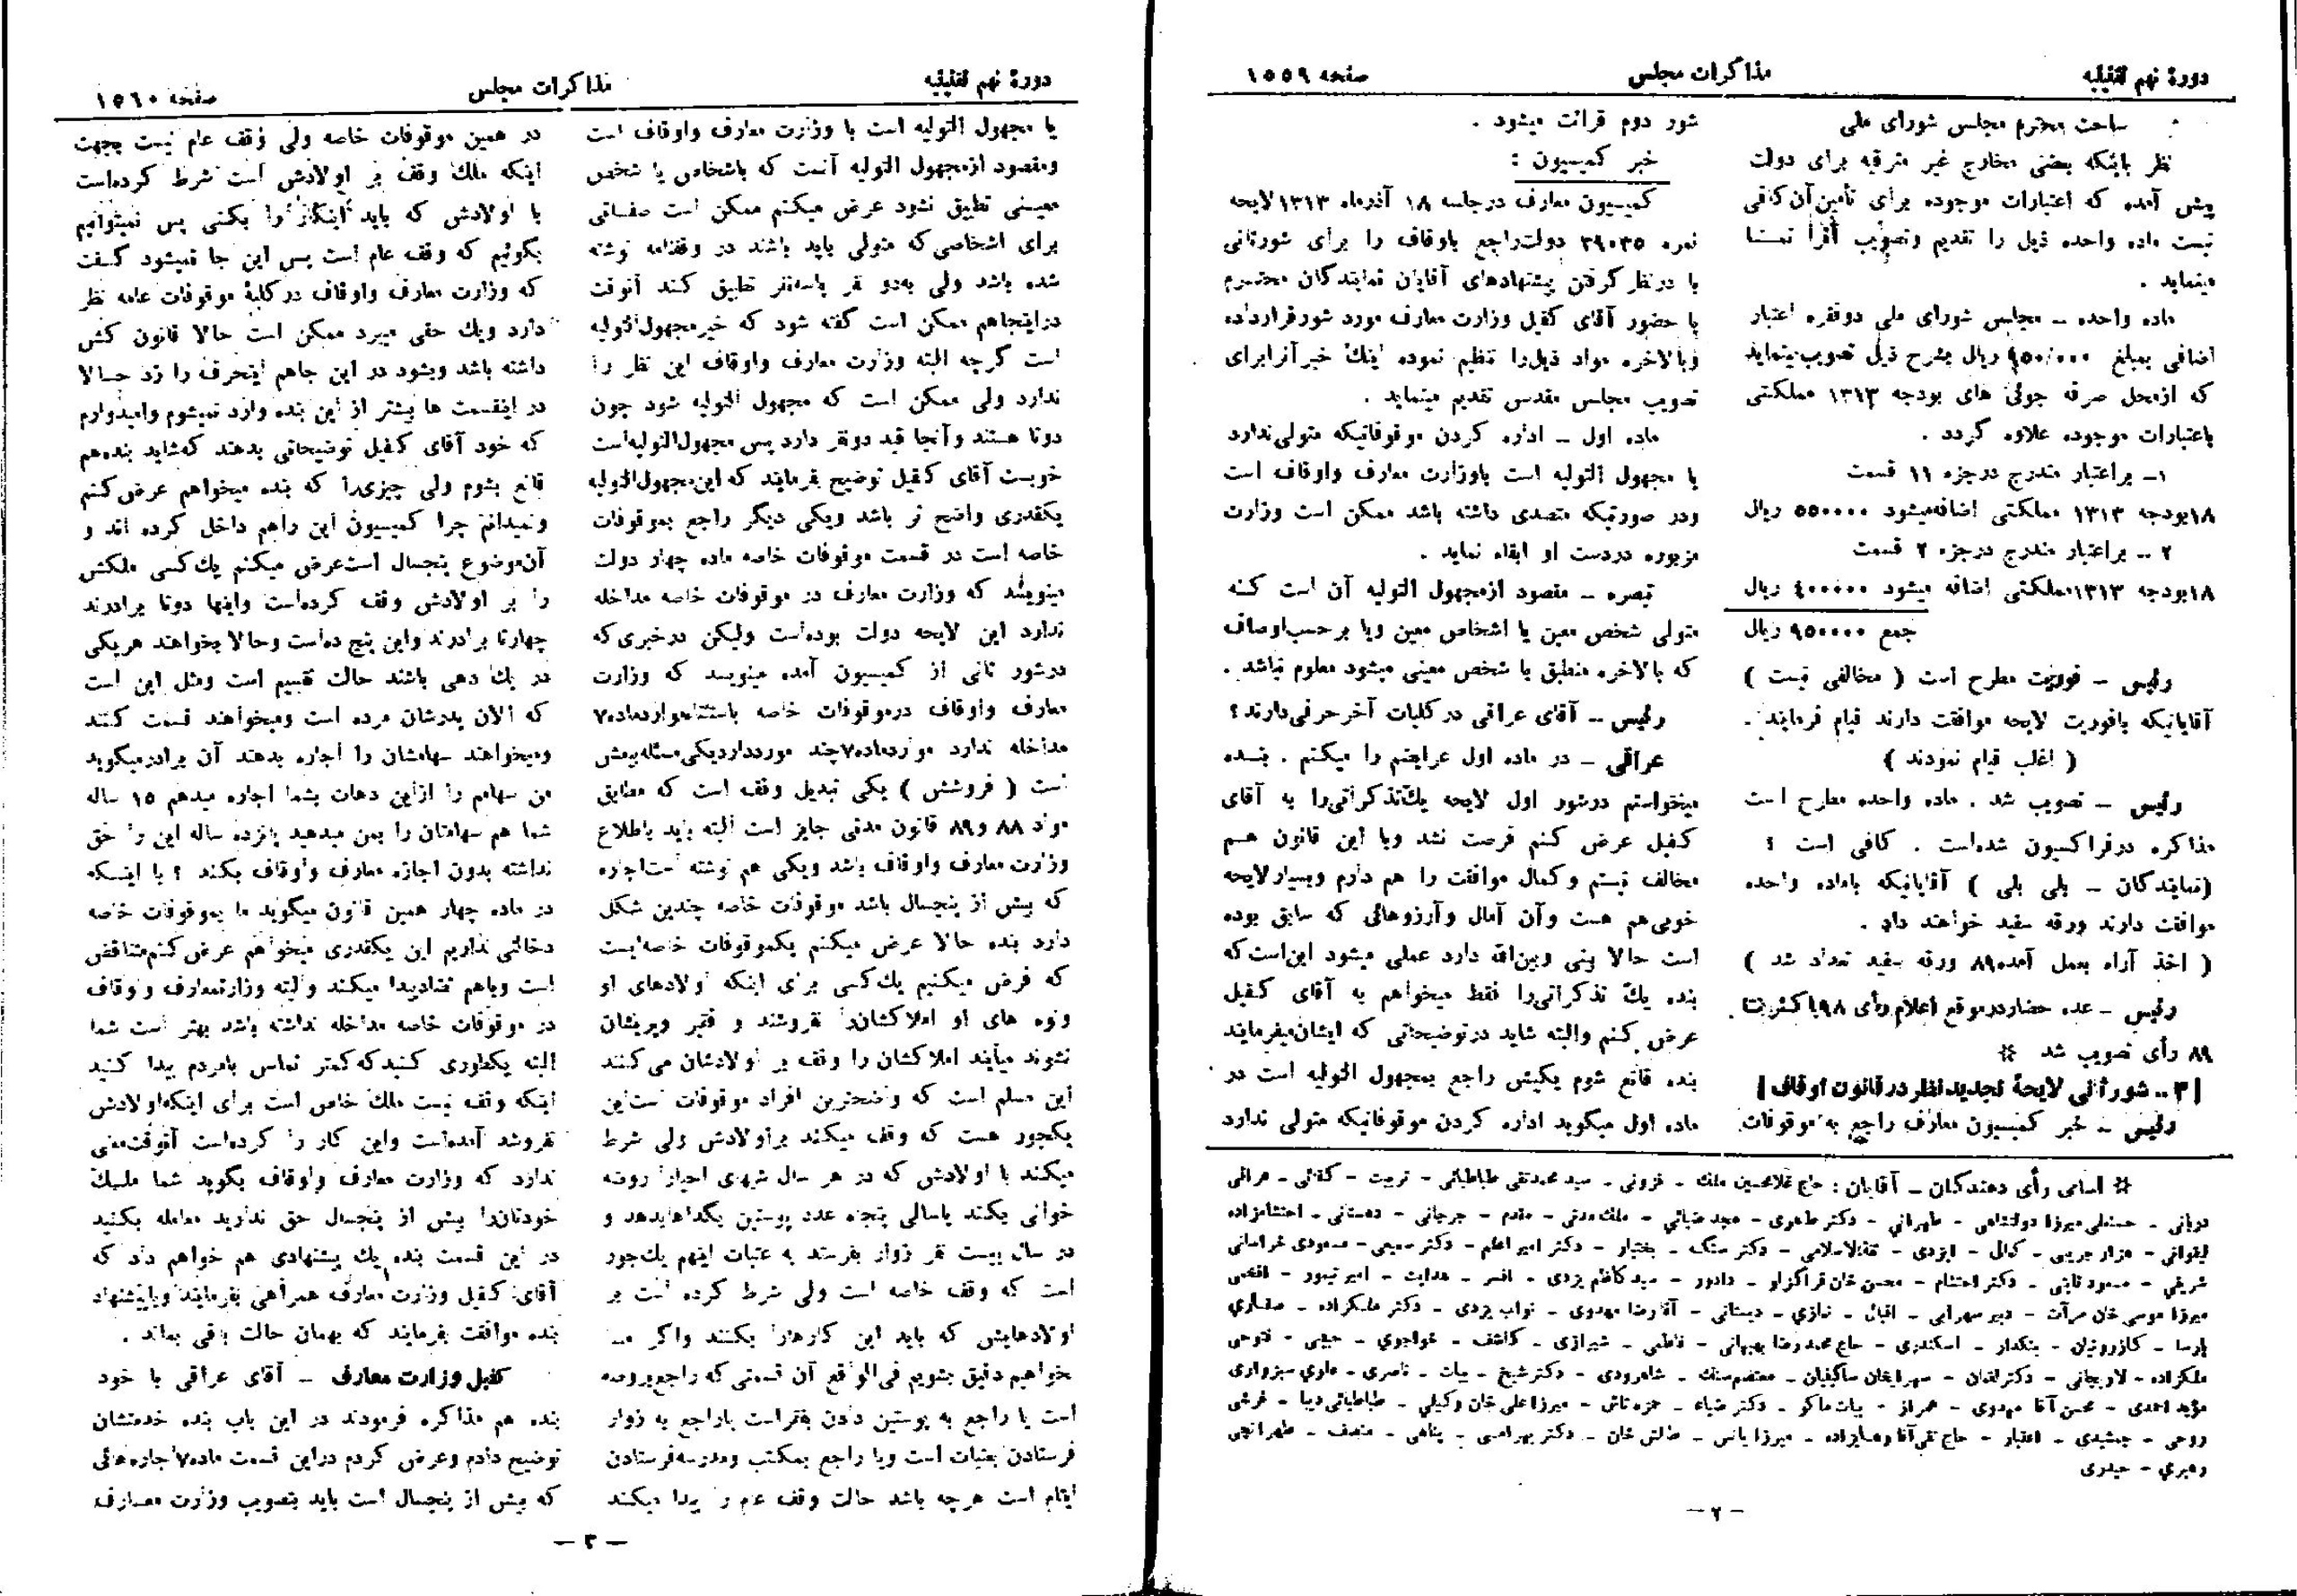 دورهٔ نهم تقنینیه
مذاکرات مجلس
صفحه ۱۵۵۹
ساحت محترم مجلس شورای ملی
نظر باینکه بعضی مخارج غیر مترقبه برای دولت
پیش آمده که اعتبارات موجوده برای تأمین آن کافی
نیست ماده واحده ذیل را تقدیم وتصویب آنرا تمنـا
مینماید .
ماده واحده ــ مجلس شورای ملی دوفقره اعتبار
اضافی بمبلغ ۹۵۰/۰۰۰ ریال بشرح ذیل تصویب‌مینماید
که ازمحل صرفه جوئی های بودجه ۱۳۱۳ مملکتی
باعتبارات موجوده علاوه گردد .
۱ــ براعتبار مندرج درجزء ۱۱ قسمت
۱۸بودجه ۱۳۱۳ مملکتی اضافه‌میشود ۵۵۰۰۰۰ ریال
۲ ــ براعتبار مندرج درجزء ۲ قسمت
۱۸بودجه ۱۳۱۳مملکتی اضافه میشود ۴۰۰۰۰۰ ریال
جمع ۹۵۰۰۰۰ ریال
رئیس ــ فوریت مطرح است ( مخالفی نیست )
آقایانیکه بافوریت لایحه موافقت دارند قیام فرمایند .
( اغلب قیام نمودند )
رئیس ــ تصویب شد . ماده واحده مطرح است
مذاکره درفراکسیون شده‌است . کافی است ؟
(نمایندکان ــ بلی بلی ) آقایانیکه باماده واحده
موافقت دارند ورقه سفید خواهند داد .
( اخذ آراء بعمل آمده۸۹ ورقه سفید تعداد شد )
رئیس ــ عده حضاردرموقع اعلام رأی ۹۸باکثریت
۸۹ رأی تصویب شد *
[ ۳ ــ شورثانی لایحهٔ تجدیدنظر درقانون اوقاف ]
رئیس ــ خبر کمیسیون معارف راجع به موقوفات
شور دوم قرائت میشود .
خبر کمیسیون :
کمیسیون معارف درجلسه ۱۸ آذرماه ۱۳۱۳لایحه
نمره ۳۹۰۳۵ دولت‌راجع باوقاف را برای شورثانی
با درنظر گرفتن پیشنهادهای آقایان نمایندکان محتـرم
با حضور آقای کفیل وزارت معارف مورد شورقرارداده
وبالاخره مواد ذیل‌را تنظیم نموده اینك خبرآنرابرای
تصویب مجلس مقدس تقدیم مینماید .
ماده اول ــ اداره کردن موقوفاتیکه متولی‌ندارد
یا مجهول التولیه است باوزارت معارف واوقاف است
ودر صورتیکه متصدی داشته باشد ممکن است وزارت
مزبوره دردست او ابقاء نماید .
تبصره ــ مقصود ازمجهول التولیه آن است کـه
متولی شخص معین یا اشخاص معین ویا برحسب‌اوصاف
که بالاخره منطبق با شخص معینی میشود معلوم نباشد .
رئیس ــ آقای عراقی درکلیات آخر حرفی‌دارند؟
عراقی ــ در ماده اول عرایضم را میکنم . بنـده
میخواستم درشور اول لایحه یك‌تذکراتی‌را به آقای
کفیل عرض کنم فرصت نشد وبا این قانون هـم
مخالف نیستم وکمال موافقت را هم دارم وبسیارلایحه
خوبی‌هم هست وآن آمال وآرزوهائی که سابق بوده
است حالا بینی وبین‌الله دارد عملی میشود این‌است‌که
بنده یك تذکراتی‌را فقط میخواهم به آقای کفیل
عرض کنم والبته شاید درتوضیحاتی که ایشان‌میفرمایند
بنده قانع شوم یکیش راجع بمجهول التولیه است در
ماده اول میگوید اداره کردن موقوفاتیکه متولی ندارد
* اسامی رأی دهندکان ــ آقایان : حاج غلامحسین ملك - قزونی - سید محمدتقی طباطبائی - تربیت - کفائی - عراقی
نوبانی - حسنعلی میرزا دولتشاهی - طهرانی - دکتر طاهری - مجد ضیائی - ملك‌مدنی - مقدم - جرجانی - دهستانی - احتشامزاده
لیقوانی - هزار جریبی - کمال - ایزدی - ثقةالاسلامی - دکتر سنك - بختیار - دکتر امیر اعلم - دکتر سمیعی - مسعودی خراسانی
شریفی - مسعود ثابتی - دکتر احتشام - محسن خان قراگزلو - دادور - سید کاظم یزدی - افسر - هدایت - امیر تیمور - افخمی
میرزا موسی خان مرآت - دبیر سهرابی - اقبال - نمازي - دبستانی - آقارضا مهدوی - نواب یزدی - دکتر ملکزاده - صفاری
پارسا - کازرونیان - بنکدار - اسکندری - حاج محمد رضا بهبهانی - فاطمی - شیرازی - کاشف - خواجوي - حبیبی - فتوحی
ملکزاده - لاریجانی - دکتر لقمان - سهرابخان ساگینیان - معتصم‌سنك - شاهرودی - دکتر شیخ - بیات - ناصری - علوي سبزواری
مؤید احمدی - محسن آقا مهدوی - همراز - بیات ماکو - دکتر ضیاء - حمزه تاش - میرزا علی خان وکیلي - طباطبائی دیبا - فرشی
روحی - جمشیدی - اعتبار - حاج تقی آقا وهابزاده - میرزا یانس - طالش خان - دکتر بهرامی - پناهی - منصف - طهرانچی
رهبري - حیدری
ــ ۲ ــ
دورهٔ نهم تقنینیه
مذاکرات مجلس
صفحه ۱۵۶۰
یا مجهول التولیه است با وزارت معارف واوقاف است
ومقصود ازمجهول التولیه آنست که باشخاص یا شخص
معینی تطبیق نشود عرض میکنم ممکن است صفـاتی
برای اشخاصی‌که متولی باید باشند در وقفنامه نوشته
شده باشد ولی به‌دو نفر یاسه‌نفر تطبیق کند آنوقت
دراینجاهم ممکن است گفته شود که خیرمجهول‌التولیه
است گرچه البته وزارت معارف واوقاف این نظر را
ندارد ولی ممکن است که مجهول التولیه شود چون
دوتا هستند وآنجا قید دونفر دارد پس مجهول‌التولیه‌است
خوبست آقای کفیل توضیح بفرمایند که این‌مجهول‌التولیه
یکقدری واضح تر باشد ویکی دیگر راجع بموقوفات
خاصه است در قسمت موقوفات خاصه ماده چهار دولت
مینویسد که وزارت معارف در موقوفات خاصه مداخله
ندارد این لایحه دولت بوده‌است ولیکن درخبری‌که
درشور ثانی از کمیسیون آمده مینویسد که وزارت
معارف واوقاف درموقوفات خاصه باستثناءمواردماده۷
مداخله ندارد مواردماده۷چند مورددارد یکی‌مسئله‌بیعش
است ( فروشش ) یکی تبدیل وقف است که مطابق
مواد ۸۸ و۸۹ قانون مدنی جایز است البته باید باطلاع
وزارت معارف واوقاف باشد ویکی هم نوشته است‌اجاره
که بیش از پنجسال باشد موقوفات خاصه چندین شکل
دارد بنده حالا عرض میکنم یکموقوفات خاصه‌ایست
که فرض میکنیم یك‌کسی برای اینکه اولادهای او
ونوه های او املاکشان‌را نفروشند و فقیر وپریشان
نشوند میآیند املاکشان را وقف بر اولادشان می‌کنند
این مسلم است که واضحترین افراد موقوفات است‌این
یکجور هست که وقف میکند براولادش ولی شرط
میکند با اولادش که در هر سال شبهای احیارا روضه
خوانی بکند یاسالی پنجاه عدد پوستین بگداهابدهد و
در سال بیست نفر زوار بفرستد به عتبات اینهم یك‌جور
است که وقف خاصه است ولی شرط کرده است بر
اولادهایش که باید این کارهارا بکنند واگر مـا
بخواهیم دقیق بشویم فی‌الواقع آن قسمتی که راجع‌بروضه
است یا راجع به پوستین دادن بفقراست یاراجع به زوار
فرستادن بعتبات است ویا راجع بمکتب ومدرسه‌فرستادن
ایتام است هرچه باشد حالت وقف عام را پیدا میکند
در همین موقوفات خاصه ولی وقف عام نیست بجهت
اینکه ملك وقف بر اولادش است شرط کرده‌است
با اولادش که باید اینکار را بکنی پس نمیتوانیم
بگوئیم که وقف عام است پس این جا نمیشود گـفت
که وزارت معارف واوقاف درکلیهٔ موقوفات عامه نظر
دارد ویك حقی میبرد ممکن است حالا قانون کش
داشته باشد وبشود در این جاهم اینحرف را زد حـالا
در اینقسمت ها بیشتر از این بنده وارد نمیشوم وامیدوارم
که خود آقای کفیل توضیحاتی بدهند که‌شاید بنده‌هم
قانع بشوم ولی چیزی‌را که بنده میخواهم عرض‌کنم
ونمیدانم چرا کمیسیون این راهم داخل کرده اند و
آن‌موضوع پنجسال است‌عرض میکنم یك‌کسی ملکش
را بر اولادش وقف کرده‌است واینها دوتا برادرند
چهارتا برادرند واین پنج ده‌است وحالا بخواهند هریکی
در یك دهی باشند حالت تقسیم است ومثل این است
که الان پدرشان مرده است ومیخواهند قسمت کننـد
ومیخواهند سهامشان را اجاره بدهند آن برادرمیگوید
من سهامم را ازاین دهات بشما اجاره میدهم ۱۵ ساله
شما هم سهامتان را بمن میدهید پانزده ساله این را حق
نداشته بدون اجازه معارف واوقاف بکند ؟ با اینـکه
در ماده چهار همین قانون میگوید ما بموقوفات خاصه
دخالتی نداریم این یکقدری میخواهم عرض کنم‌متناقض
است وباهم تضادپیدا میکند والبته وزارتمعارف واوقاف
در موقوفات خاصه مداخله نداشته باشد بهتر است شما
البته یکطوری کنیدکه‌کمتر تماس بامردم پیدا کنید
اینکه وقف نیست ملك خاص است برای اینکه‌اولادش
نفروشد آمده‌است واین کار را کرده‌است آنوقت‌معنی
ندارد که وزارت معارف واوقاف بگوید شما ملـك
خودتان‌را بیش از پنجسال حق ندارید معامله بکنید
در این قسمت بنده یك پیشنهادی هم خواهم داد که
آقای کفیل وزارت معارف همراهی بفرمایند وباپیشنهاد
بنده موافقت بفرمایند که بهمان حالت باقی بماند .
کفیل وزارت معارف ــ آقای عراقی با خود
بنده هم مذاکره فرمودند در این باب بنده خدمتشان
توضیح دادم وعرض کردم دراین قسمت ماده۷اجاره‌هائی
که بیش از پنجسال است باید بتصویب وزارت معـارف
ــ ۳ ــ